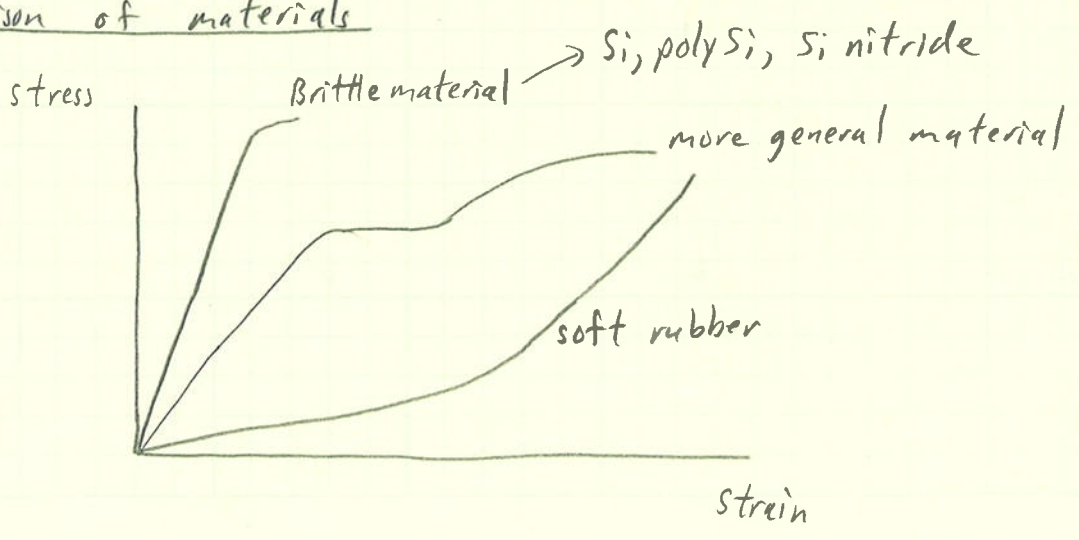 of materials
Si, poly Si, Si nitride
stress
Brittle material
more general material
soft rubber
strain